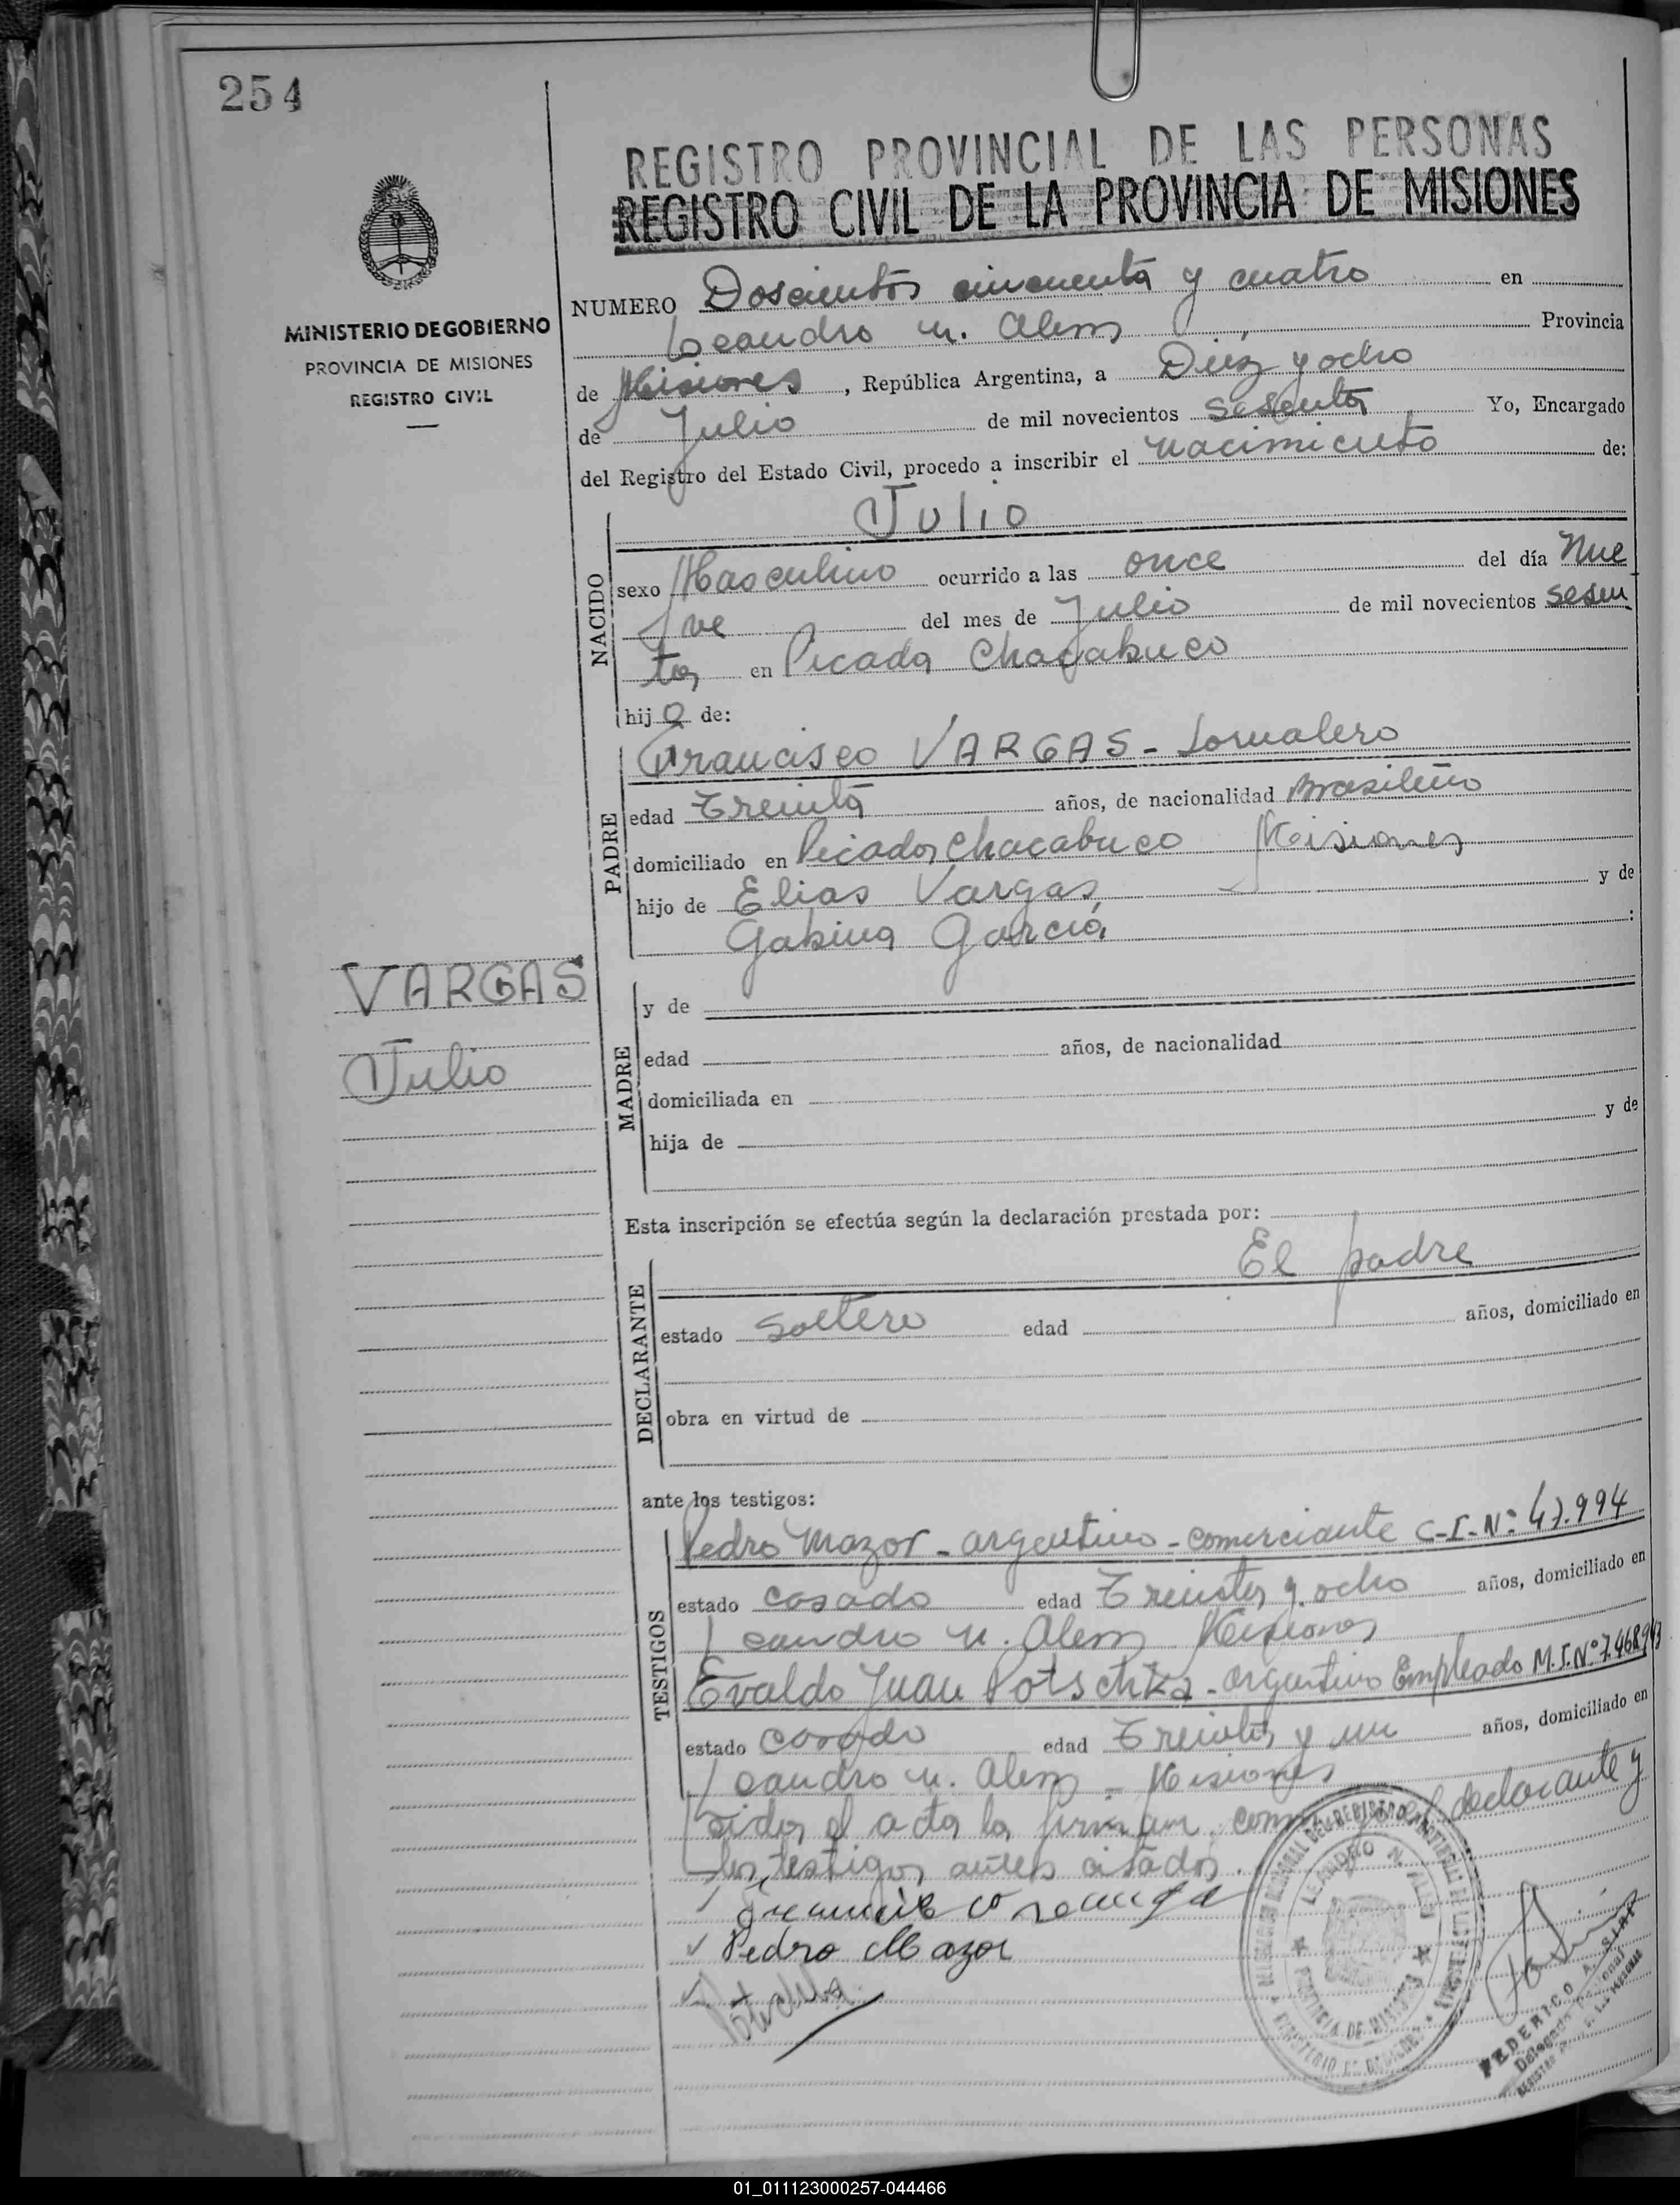 254
REGISTRO PROVINCIAL DE LAS PERSONAS
REGISTRO CIVIL DE LA PROVINCIA DE MISIONES
MINISTERIO DE GOBIERNO
PROVINCIA DE MISIONES
REGISTRO CIVIL
NUMERO Doscientos cincuenta y cuatro en
Leandro N. Alem Provincia
de Misiones, República Argentina, a Diez y ocho
de Julio de mil novecientos sesenta Yo, Encargado
del Registro del Estado Civil, procedo a inscribir el nacimiento de:
NACIDO
Julio
sexo Masculino ocurrido a las once del día Nue
ve del mes de Julio de mil novecientos sesen
ta en Picada Chacabuco
hijo de:
PADRE
Francisco VARGAS - Jornalero
edad Treinta años, de nacionalidad Brasileño
domiciliado en Picada Chacabuco Misiones
hijo de Elias Vargas y de
Gabina García :
VARGAS
Julio
MADRE
y de
edad años, de nacionalidad
domiciliada en
hija de y de
Esta inscripción se efectúa según la declaración prestada por:
DECLARANTE
El padre
estado soltero edad años, domiciliado en
obra en virtud de
ante los testigos:
TESTIGOS
Pedro Mazor - argentino - comerciante C-I-Nº 47.994
estado casado edad Treinta y ocho años, domiciliado en
Leandro N. Alem Misiones
Evaldo Juan Potschka - argentino Empleado M.I.Nº 7.468.943
estado casado edad Treinta y un años, domiciliado en
Leandro N. Alem - Misiones
Leida el acta la firman conmigo el declarante y
los testigos antes citados.
Pedro Mazor
LEANDRO N. ALEM
PROVINCIA DE MISIONES
MINISTERIO DE GOBIERNO
FEDERICO A.
01_011123000257-044466